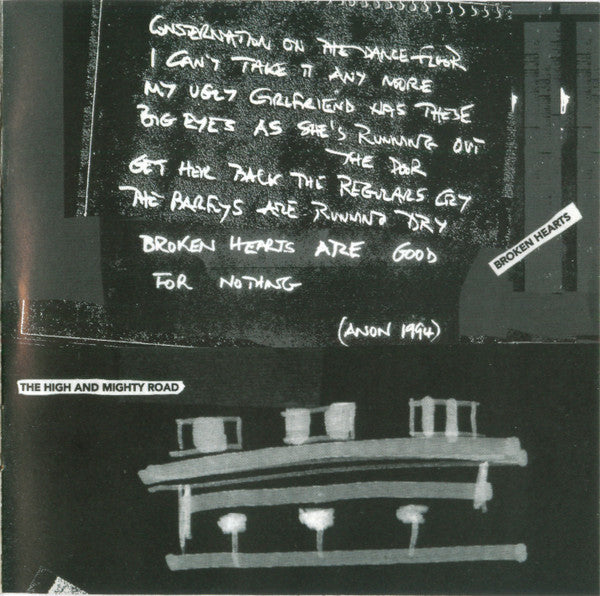 CONSTERNATION ON THE DANCE-FLOOR
I CAN'T TAKE IT ANY MORE
MY UGLY GIRLFRIEND HAS THESE
BIG EYES AS SHE'S RUNNING OUT
THE DOOR
GET HER BACK THE REGULARS CRY
THE BARLEYS ARE RUNNING DRY
BROKEN HEARTS ARE GOOD
FOR NOTHING
(ANON 1994)
BROKEN HEARTS
THE HIGH AND MIGHTY ROAD